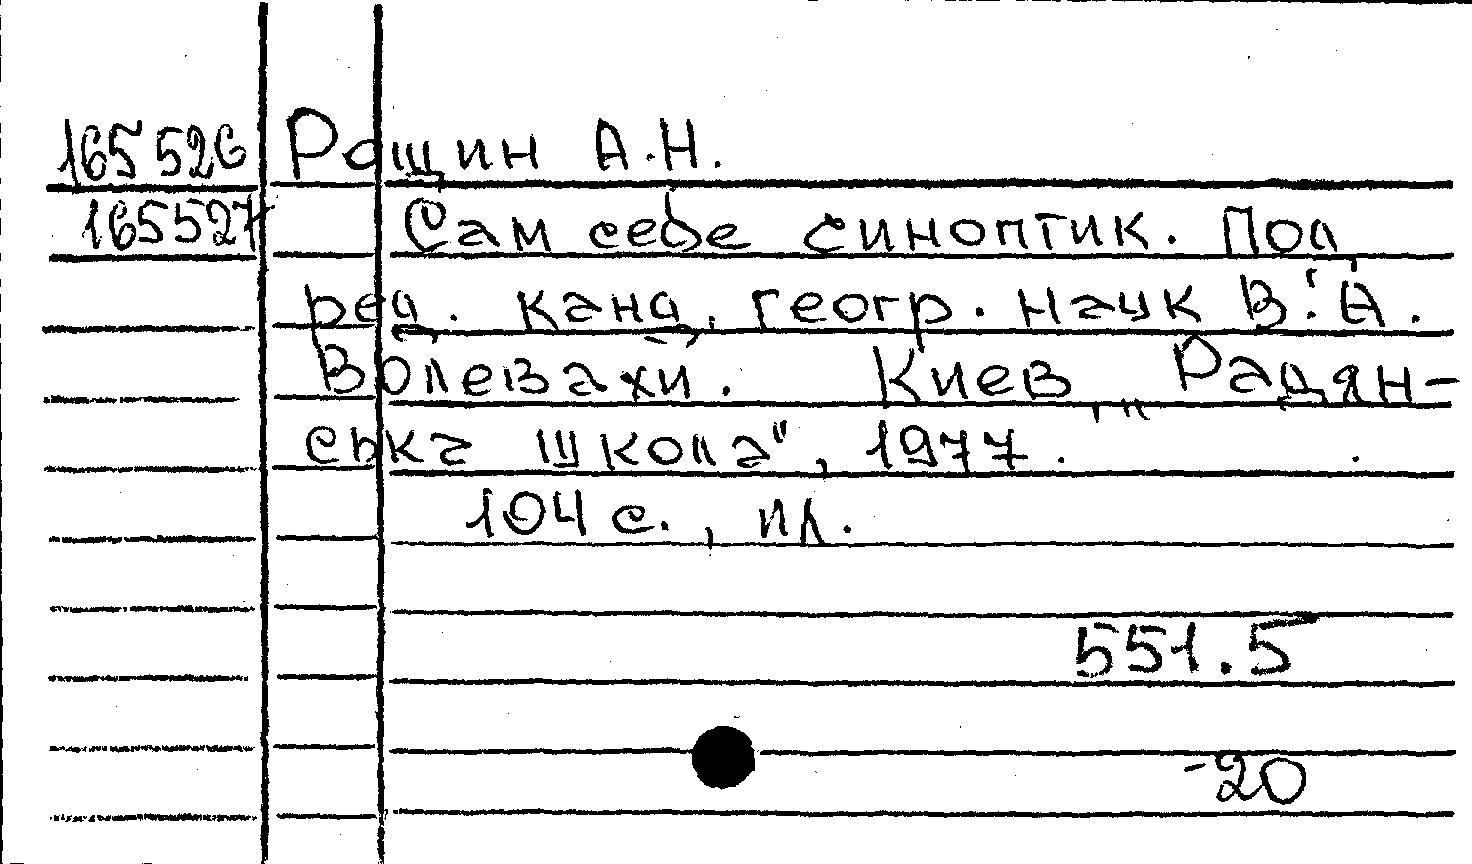 165526 Рощин А.Н.
165527 Сам себе синоптик. Под
ред. канд. геогр. наук В.А.
Волевахи. Киев, „Радян-
ська школа", 1977.
104 с., ил.
551.5
-20